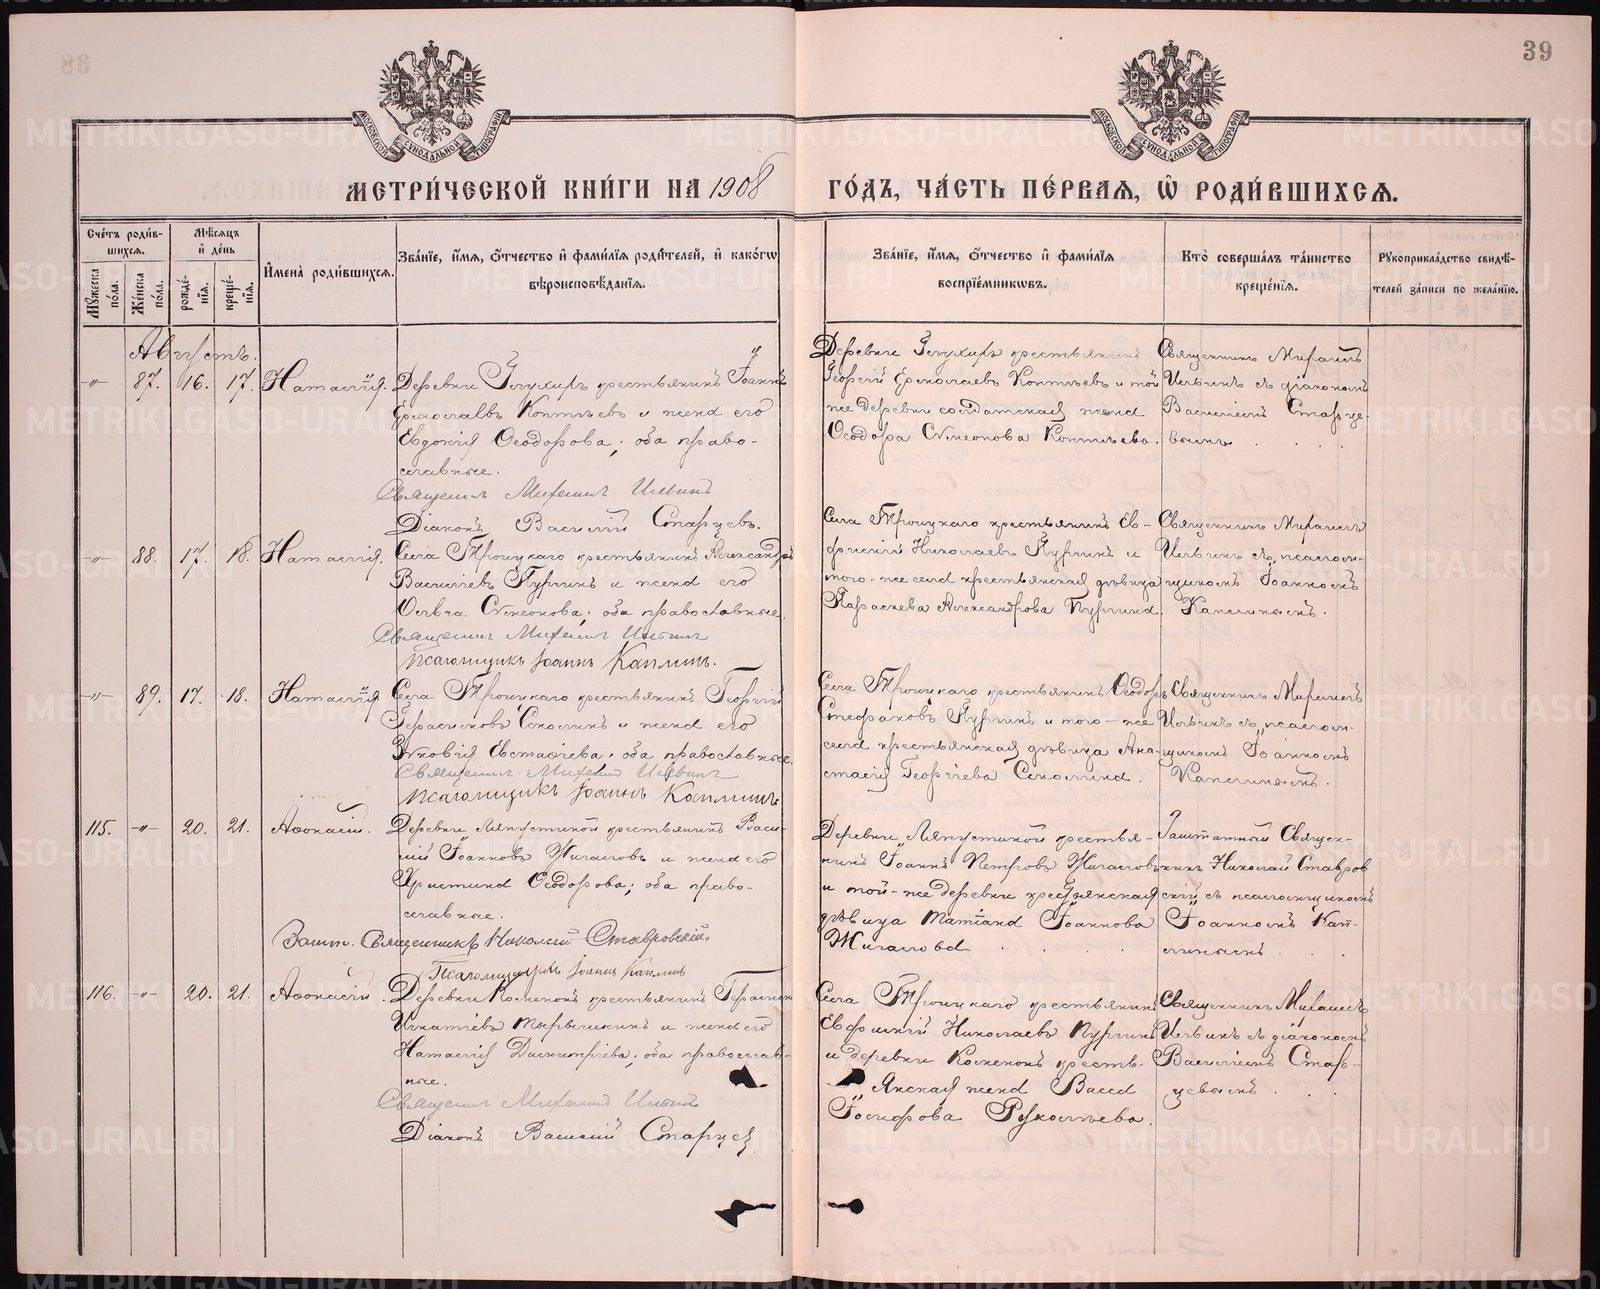 38
39
МОСКОВСКОЙ СѴНОДАЛЬНОЙ ТИПОГРАФІИ
МОСКОВСКОЙ СѴНОДАЛЬНОЙ ТИПОГРАФІИ
МЕТРИ́ЧЕСКОЙ КНИ́ГИ НА 1908
ГО́ДЪ, ЧА́СТЬ ПЕ́РВАѦ, Ѡ҆ РОДИ́ВШИХСѦ.
Сче́тъ роди́в-
шихсѧ.
Мꙋ́жеска по́ла.
Же́нска по́ла.
Мѣ́сѧцъ
и҆ де́нь
рожде́-
нїѧ.
креще́-
нїѧ.
И҆мена̀ роди́вшихсѧ.
Зва́нїе, и҆́мѧ, ѻ҆́тчество и҆ фами́лїѧ роди́телей, и҆ како́гѡ
вѣроисповѣ́данїѧ.
Зва́нїе, и҆́мѧ, ѻ҆́тчество и҆ фами́лїѧ
воспрїе́мникѡвъ.
Кто̀ соверша́лъ та́инство
креще́нїѧ.
Рꙋкоприкла́дство свидѣ́-
телей за́писи по жела́нїю.
Августъ.
-"- 87. 16. 17. Наталія. Деревни крестьянинъ Іоаннъ
Ермолаевъ Коптѣевъ и жена его
Евдокія Ѳеодорова; оба право-
славные.
Священникъ Михаилъ Ильинъ
Діаконъ Василій Старцевъ.
Деревни крестьянинъ
Георгій Ермолаевъ Коптѣевъ и той
же деревни солдатская жена
Ѳеодора Сѵмеонова Коптѣева.
Священникъ Михаилъ
Ильинъ съ діакономъ
Василіемъ Старце-
вымъ.
-"- 88. 17. 18. Наталія. Села Троицкаго крестьянинъ Александръ
Васильевъ Пургинъ и жена его
Ольга Сѵмеонова; оба православные.
Священникъ Михаилъ Ильинъ
Псаломщикъ Іоаннъ Каплинъ.
Села Троицкаго крестьянинъ Ев-
фимій Николаевъ Пургинъ и
того-же села крестьянская дѣвица
Параскева Александрова Пургина.
Священникъ Михаилъ
Ильинъ съ псалом-
щикомъ Іоанномъ
Каплинымъ.
-"- 89. 17. 18. Наталія Села Троицкаго крестьянинъ Георгій
Герасимовъ Соколинъ и жена его
Зиновія Евстафіева; оба православные.
Священникъ Михаилъ Ильинъ
Псаломщикъ Іоаннъ Каплинъ.
Села Троицкаго крестьянинъ Ѳеодоръ
Стефановъ Пургинъ и того-же
села крестьянская дѣвица Ана-
стасія Георгіева Соколина.
Священникъ Михаилъ
Ильинъ съ псалом-
щикомъ Іоанномъ
Каплинымъ.
115. -"- 20. 21. Аѳанасій. Деревни Ляпустиной крестьянинъ Васи-
лій Іоанновъ Жигаловъ и жена его
Христина Ѳеодорова; оба право-
славные.
Зашт. Священникъ Николай Ставровскій.
Псаломщикъ Іоаннъ Каплинъ
Деревни Ляпустиной крестья-
нинъ Іоаннъ Петровъ Жигаловъ
и той-же деревни крестьянская
дѣвица Татіана Іоаннова
Жигалова
Заштатный Священ-
никъ Николай Ставров
скій съ псаломщикомъ
Іоанномъ Кап-
линымъ.
116. -"- 20. 21. Аѳанасій. Деревни крестьянинъ Герасимъ
Игнатіевъ и жена его
Наталія Димитріева; оба православ-
ные.
Священникъ Михаилъ Ильинъ
Діаконъ Василій Старцевъ
Села Троицкаго крестьянинъ
Евфимій Николаевъ Пургинъ
и деревни кресть-
янская жена Васса
Іосифова Рукомѣева.
Священникъ Михаилъ
Ильинъ съ діакономъ
Василіемъ Стар-
цевымъ.
METRIKI.GASO-URAL.RU